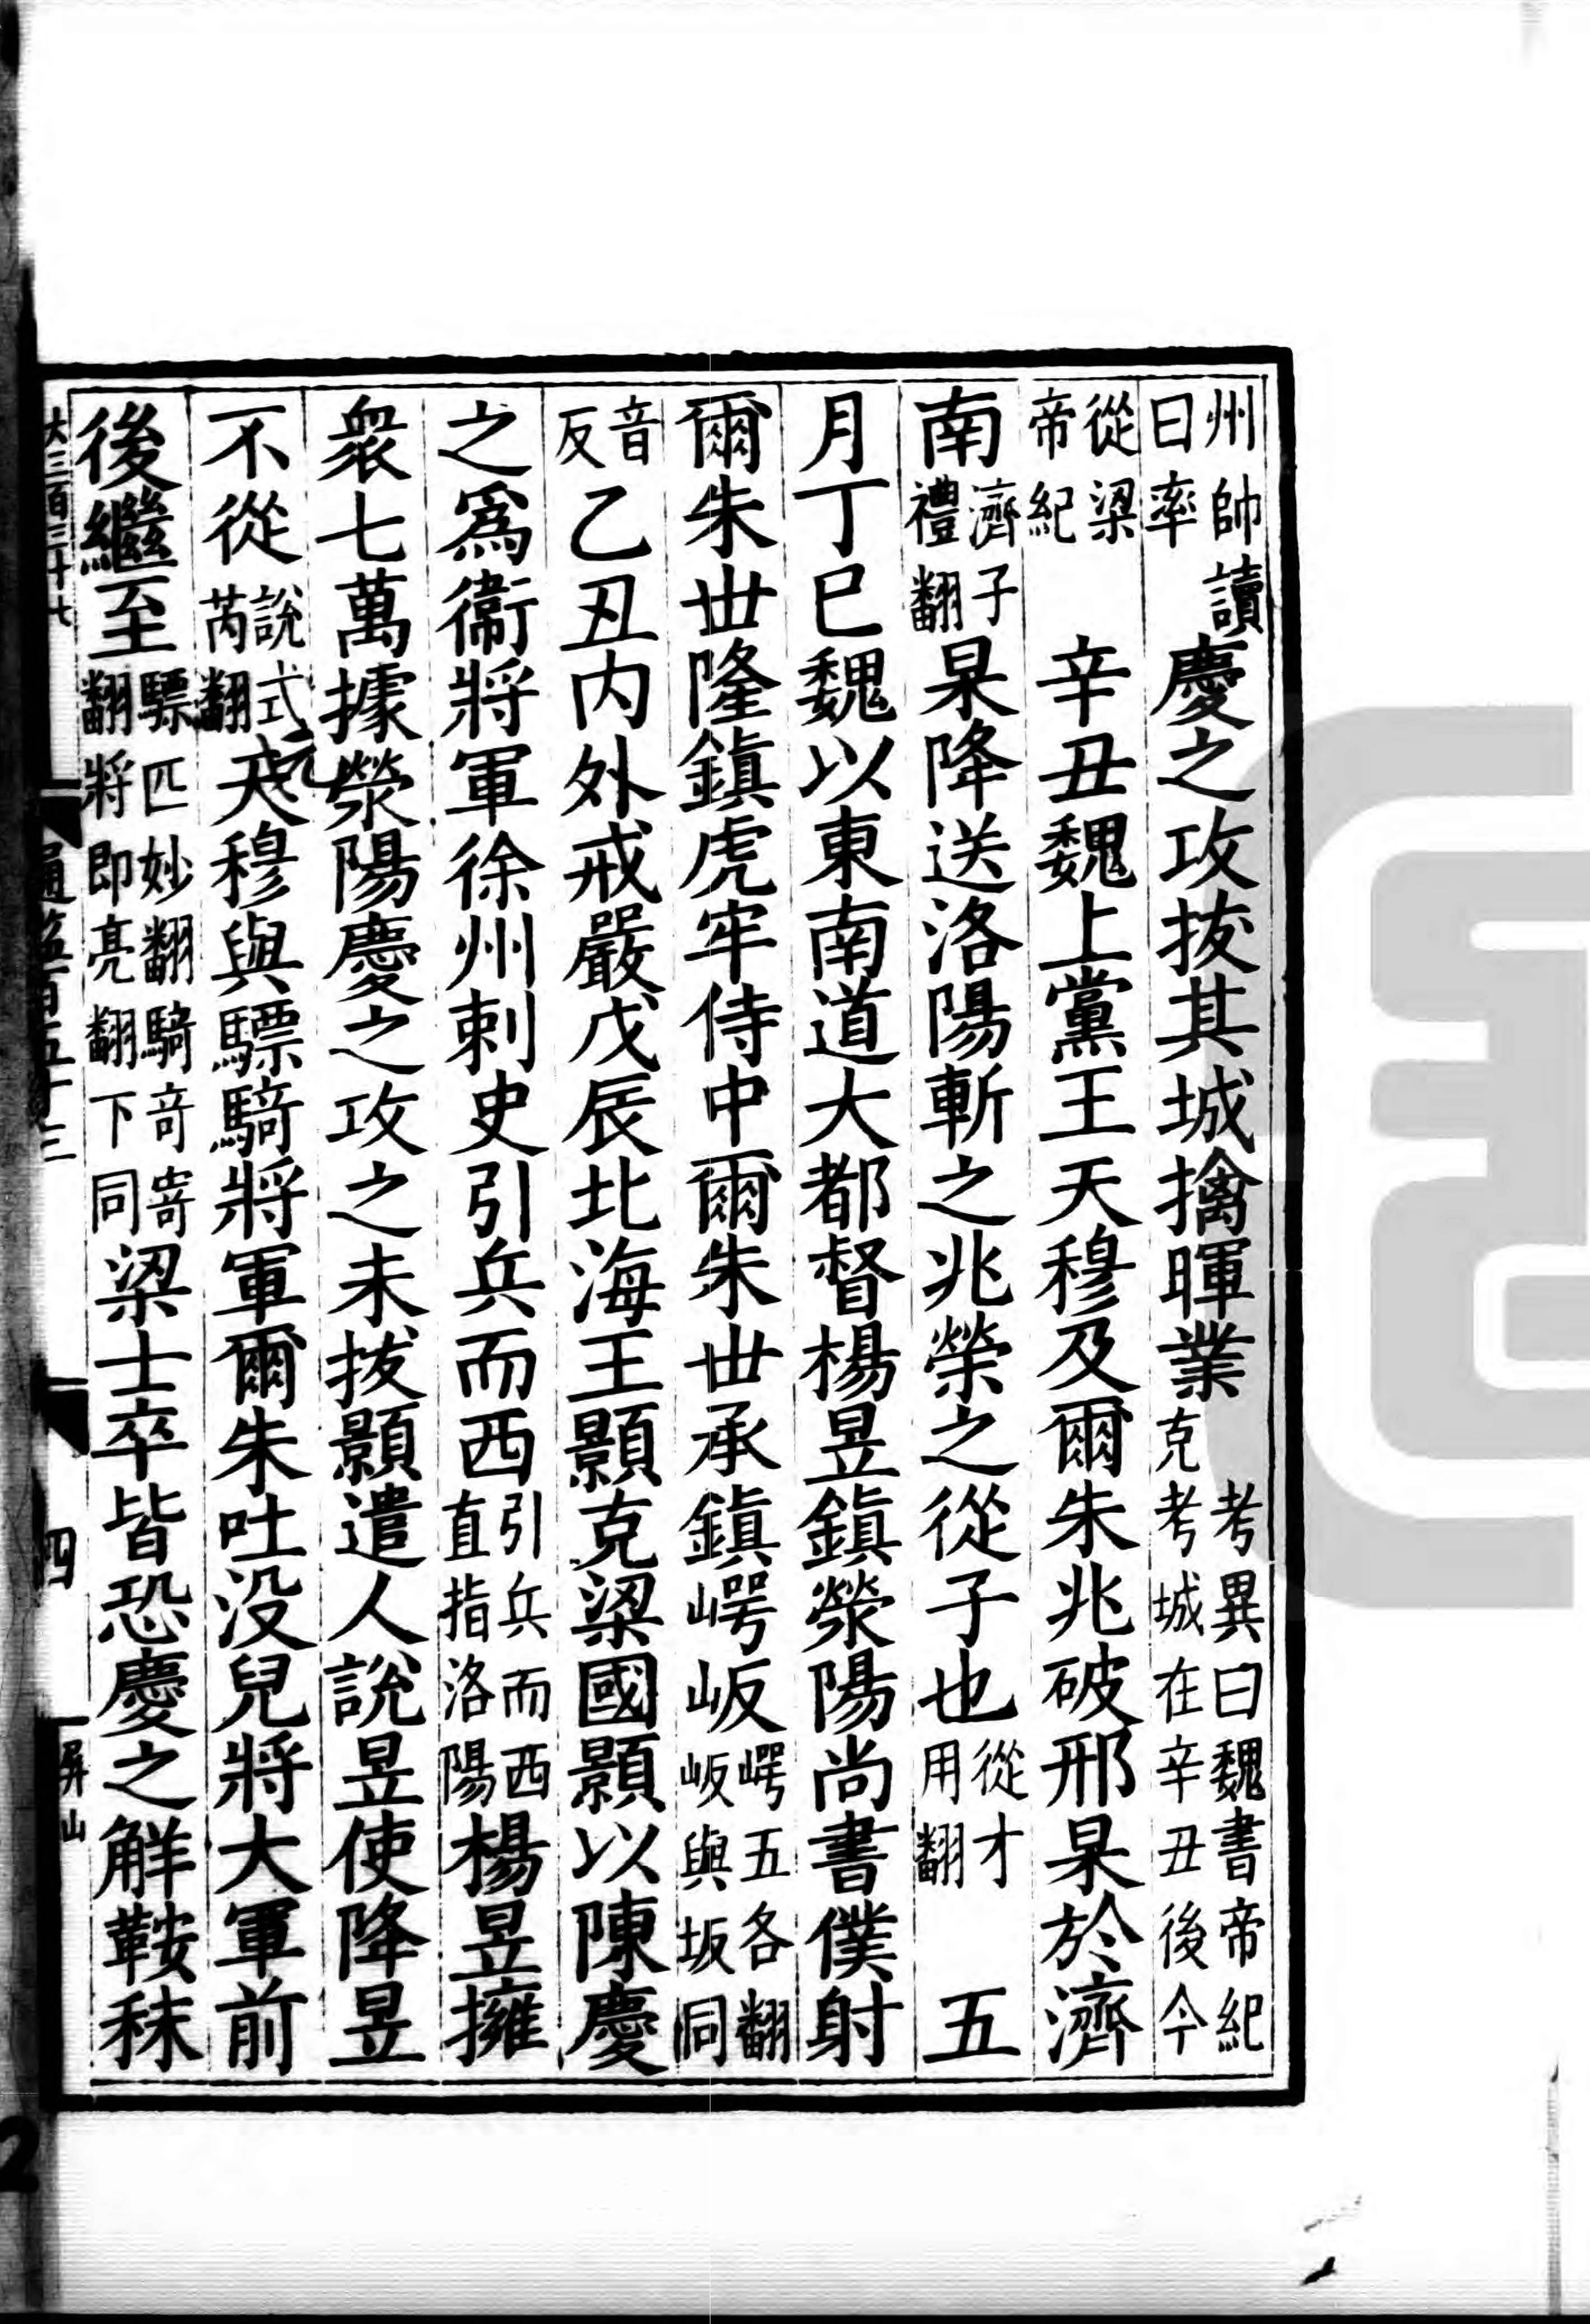 州帥讀曰率慶之攻拔其城擒暉業考異曰魏書帝紀克考城在辛丑後今
從梁帝紀辛丑魏上黨王天穆及爾朱兆破邢杲於濟
南濟子禮翻杲降送洛陽斬之兆榮之從子也從才用翻五
月丁巳魏以東南道大都督楊昱鎮滎陽尚書僕射
爾朱世隆鎮虎牢侍中爾朱世承鎮崿岅崿五各翻岅與坂同
音反乙丑內外戒嚴戊辰北海王顥克梁國顥以陳慶
之爲衞將軍徐州刺史引兵而西引兵而西直指洛陽楊昱擁
衆七萬據滎陽慶之攻之未拔顥遣人說昱使降昱
不從說式芮翻天穆與驃騎將軍爾朱吐没兒將大軍前
後繼至驃匹妙翻騎奇寄翻將即亮翻下同梁士卒皆恐慶之解鞍秣
大三百三十七
通鑑一百五十三
四
屏山